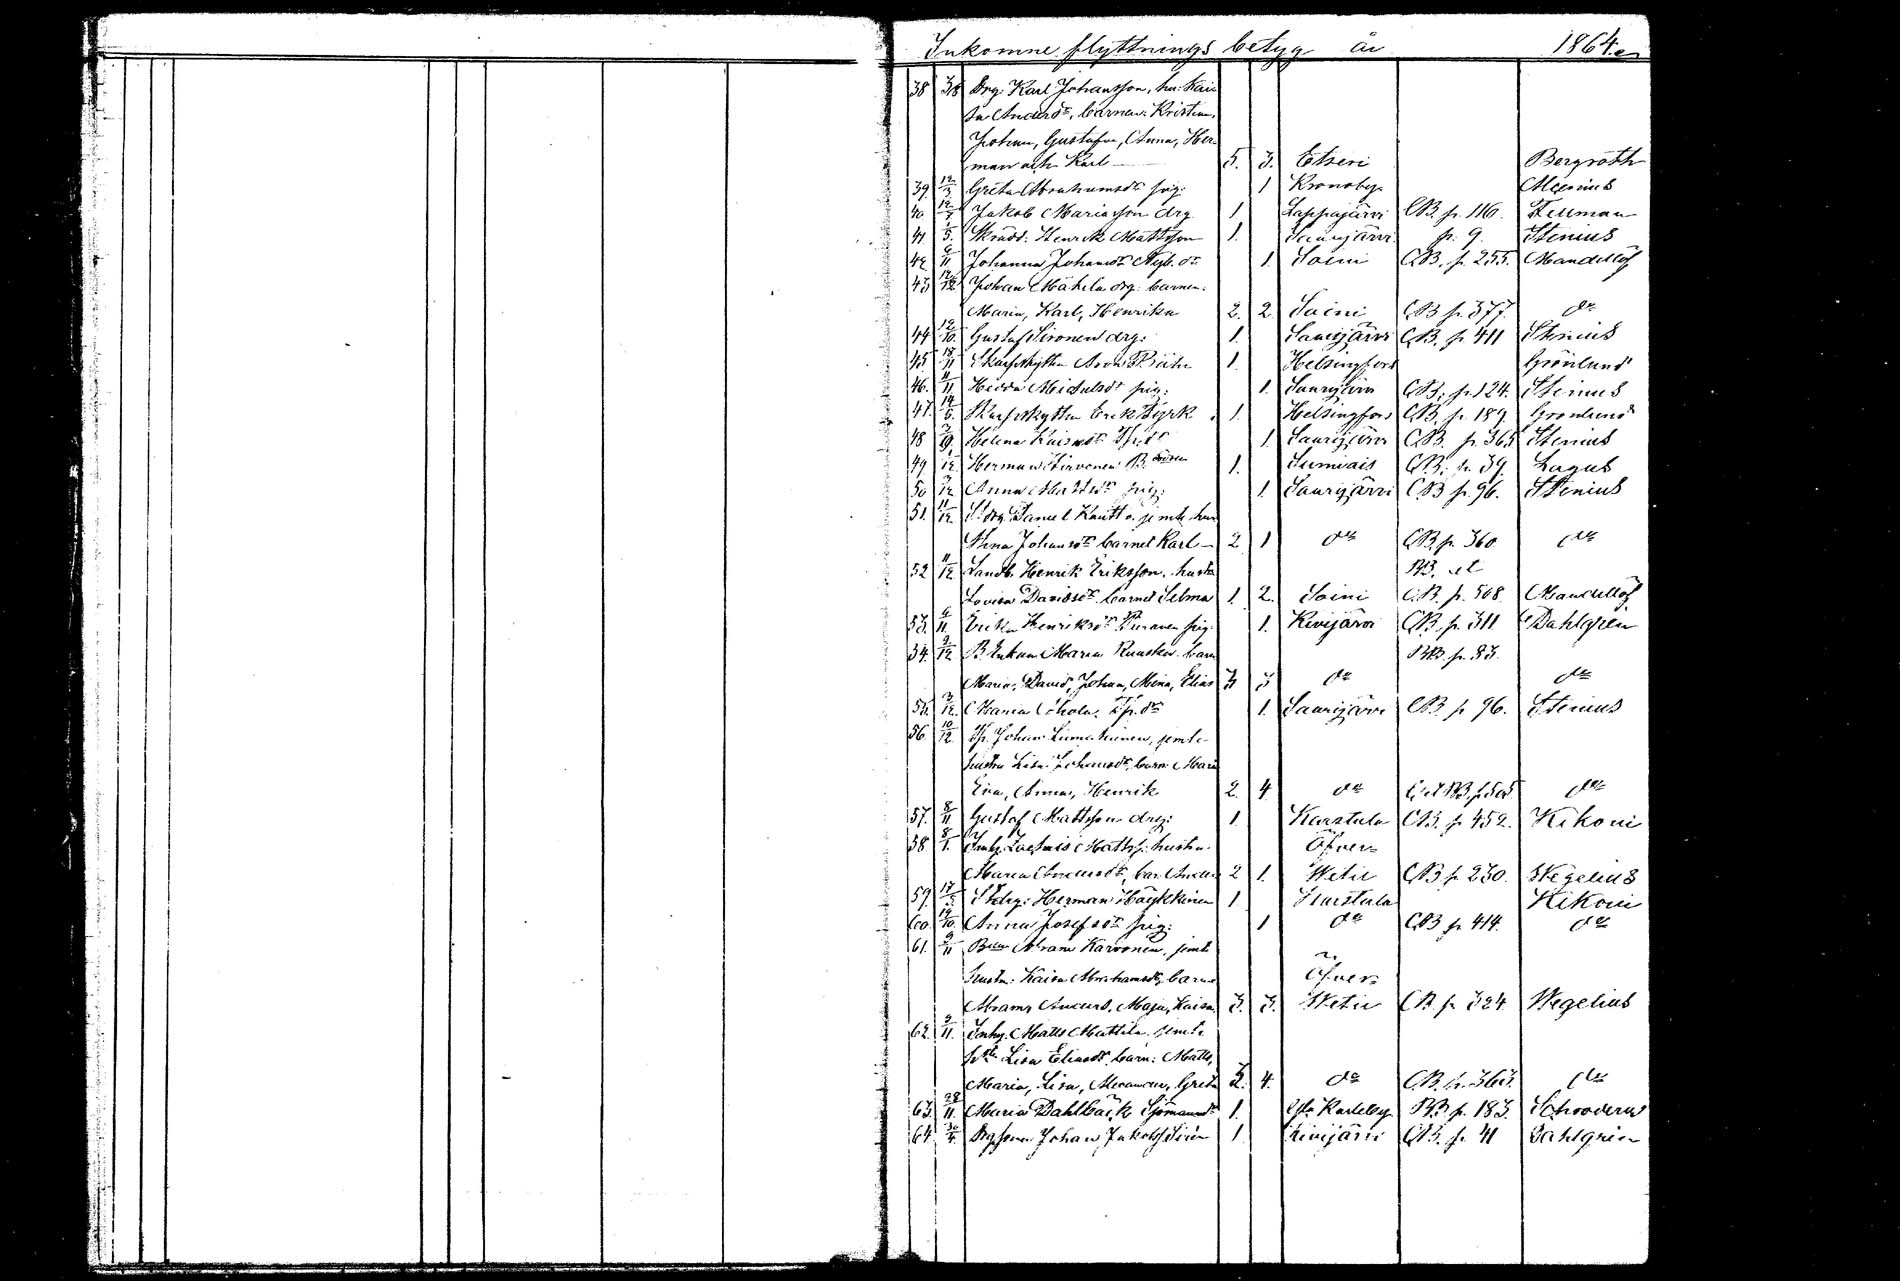 Inkomne flyttnings betyg år 1864.
38 3/8 Drg: Karl Johansson, hu: Kai-
sa Andersdr, barnen: Kristina,
Johan, Gustafva, Anna, Her-
man och Karl — 5. 3. Etseri Bergroth
39. 12/3 Greta Abrahamsdr pig: 1 Kronoby
40 Jakob Mariasson drg 1 Lappajärvi CB. p. 116. Fellman
41 1/5. Skrädd: Henrik Mattsson 1. Saarijärvi p. 9 Stenius
42 6/11 Johanna Johansdr Nyb. dr 1. Soini CB. p. 255. Mandellöf
43 12/12 Johan Mähelä drg: barnen:
Maria, Karl, Henrika 2. 2. Soini CB p. 377. do
44 12/10. Gustaf Sironen drg: 1. Saarijärvi CB. p. 411 Stenius
45 18/11 Skarpskytten 1. Helsingfors Grönlund
46. 11/11 Hedda Michelsdr pig: 1. Saarijärvi CB. p. 124. Stenius
47. 14/5. Skarpskytten Erik Byrk 1. Helsingfors CB. p. 189. Grönlund
48 3/9. Helena Kaisasdr Tp. dr 1. Saarijärvi CB. p. 365 Stenius
49 Herman Hirvonen B. sonen 1. Sumiais CB. p. 39. Lagus
50 3/12 Anna Mattsdr pig: 1. Saarijärvi CB p. 96. Stenius
51. 11/12 Daniel Knutt jemte hu
Stina Johansdr barnet Karl — 2 1 do CB. p. 360. do
52 11/12 Landb. Henrik Eriksson, hustr: BB. et
Lovisa Davidsdr barnet Selma 1. 2. Soini CB. p. 508. Mandellöf
53. 6/11. Erika Henriksdr Piiranen pig: 1. Kivijärvi CB. p. 311 Dahlgren
54. 9/12 B. Enkan Maria Ruuska barn BB. p. 83.
Maria, David, Johan, Mina, Elias 3 3 do do
55. 3/12. Maria Ahola, Tp. dr 1. Saarijärvi CB p 96. Stenius
56 10/12. Tp. Johan Liimatainen, jemte
hustru Lisa Johansdr, barn: Maria
Eva, Anna, Henrik 2. 4. do do
57. 8/11 Gustaf Mattsson drg: 1. Karstula CB. p 452. Kikoni
58. 8/1. Inhy. Matts: hustru Öfver-
Maria Andersdr, bar. Ander 2 1. Wetil CB p 230. Wegelius
59. St drg: Herman Häykkinen 1. Karstula Kikoni
60. 14/10. Anna Josefsdr pig: 1 do CB p 414. do
61. 9/11 Bon Abram Karvonen, jemte
hustru: Kaisa Abrahamsdr barne Öfver-
Abram, Anders, Maja, Kaisa 3. 3. Wetil CB. p 324. Wegelius
62. 3/11. Inhy. Matts Mattila, jemte
hstr Lisa Eliasdr. barn: Matts,
Maria, Lisa, Alexander, Greta 3. 4. do CB. p. 363. do
63. 28/11. Maria Dahlbäck Sjömansdr 1. Gla Karleby BB p. 183. Schroderus
64. 30/4. Johan Jakobss Sirén 1. Kivijärvi CB. p. 41 Dahlgren